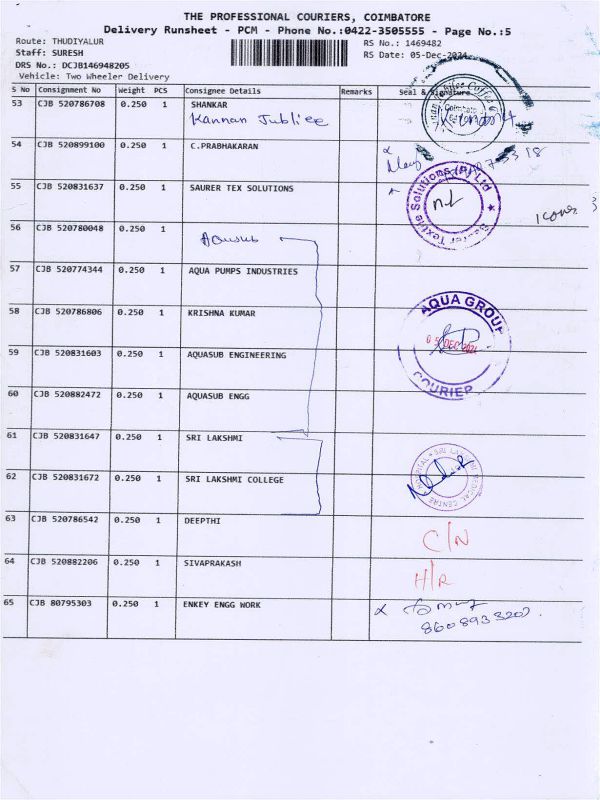 THE PROFESSIONAL COURIERS, COIMBATORE
Delivery Runsheet - PCM - Phone No.:0422-3505555 - Page No.:5
Route: THUDIYALUR
Staff: SURESH
DRS No.: DCJB146948205
Vehicle: Two Wheeler Delivery
RS No.: 1469482
RS Date: 05-Dec-2024
S No Consignment No Weight PCS Consignee Details Remarks Seal & Signature
53 CJB 520786708 0.250 1 SHANKAR
Kannan Jubliee
54 CJB 520899100 0.250 1 C.PRABHAKARAN
55 CJB 520831637 0.250 1 SAURER TEX SOLUTIONS
56 CJB 520780048 0.250 1
Aquasub
57 CJB 520774344 0.250 1 AQUA PUMPS INDUSTRIES
AQUA GROUP
05 DEC 2024
COURIER
58 CJB 520786806 0.250 1 KRISHNA KUMAR
59 CJB 520831603 0.250 1 AQUASUB ENGINEERING
60 CJB 520882472 0.250 1 AQUASUB ENGG
61 CJB 520831647 0.250 1 SRI LAKSHMI
62 CJB 520831672 0.250 1 SRI LAKSHMI COLLEGE
63 CJB 520786542 0.250 1 DEEPTHI
C/N
64 CJB 520882206 0.250 1 SIVAPRAKASH
H/R
65 CJB 80795303 0.250 1 ENKEY ENGG WORK